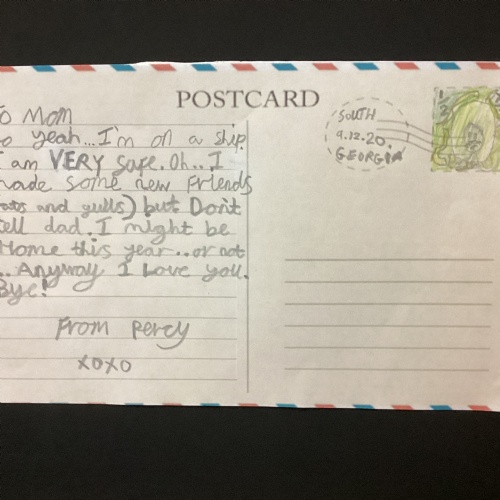 POSTCARD
To Mom
So yeah...I'm on a ship.
I am VERY safe. Oh..I
made some new friends
(rats and gulls) but Don't
tell dad. I might be
Home this year..or not
.. Anyway I Love you.
Bye!
From Percy
xoxo
SOUTH
9.12.20.
GEORGIA